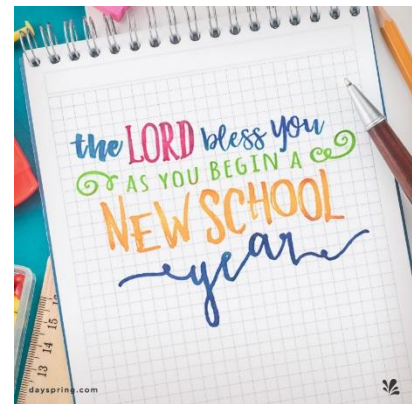 the LORD bless you
AS YOU BEGIN A
NEW SCHOOL
year
15
14
13
dayspring.com